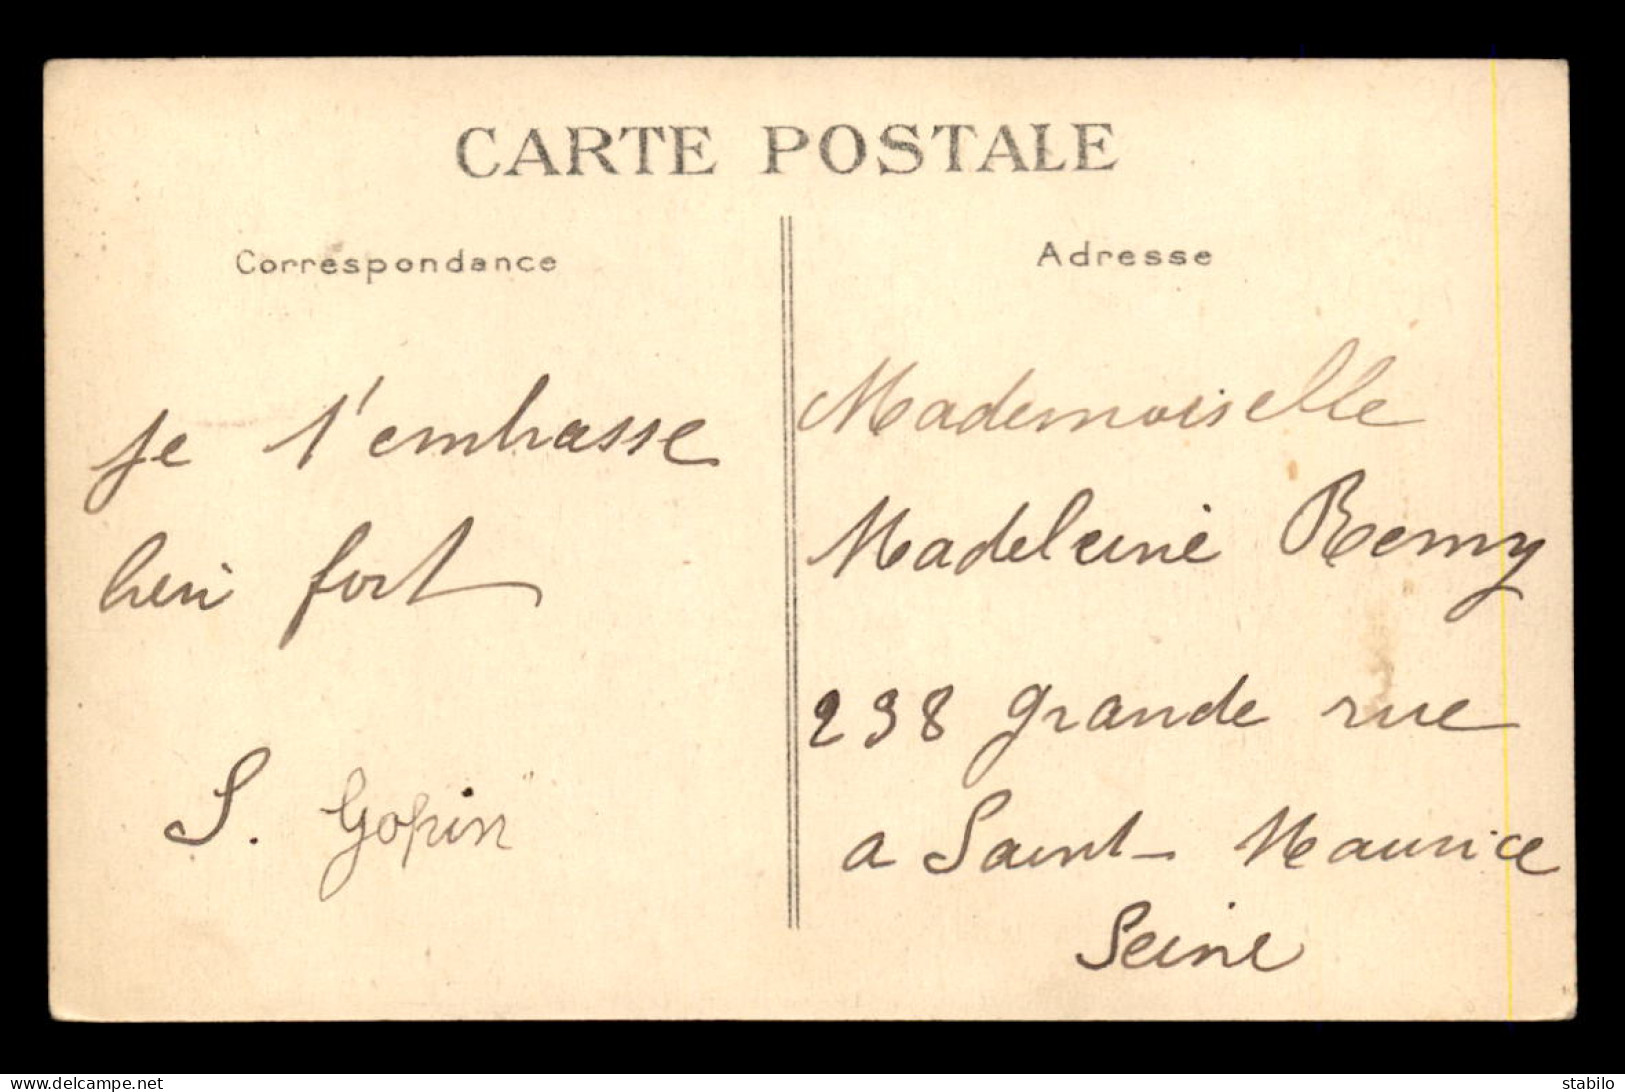 CARTE POSTALE
Correspondance
je t'embrasse
bien fort
S. Gopin
Adresse
Mademoiselle
Madeleine Remy
238 grande rue
a Saint-Maurice
Seine
delcampe.net
stabilo